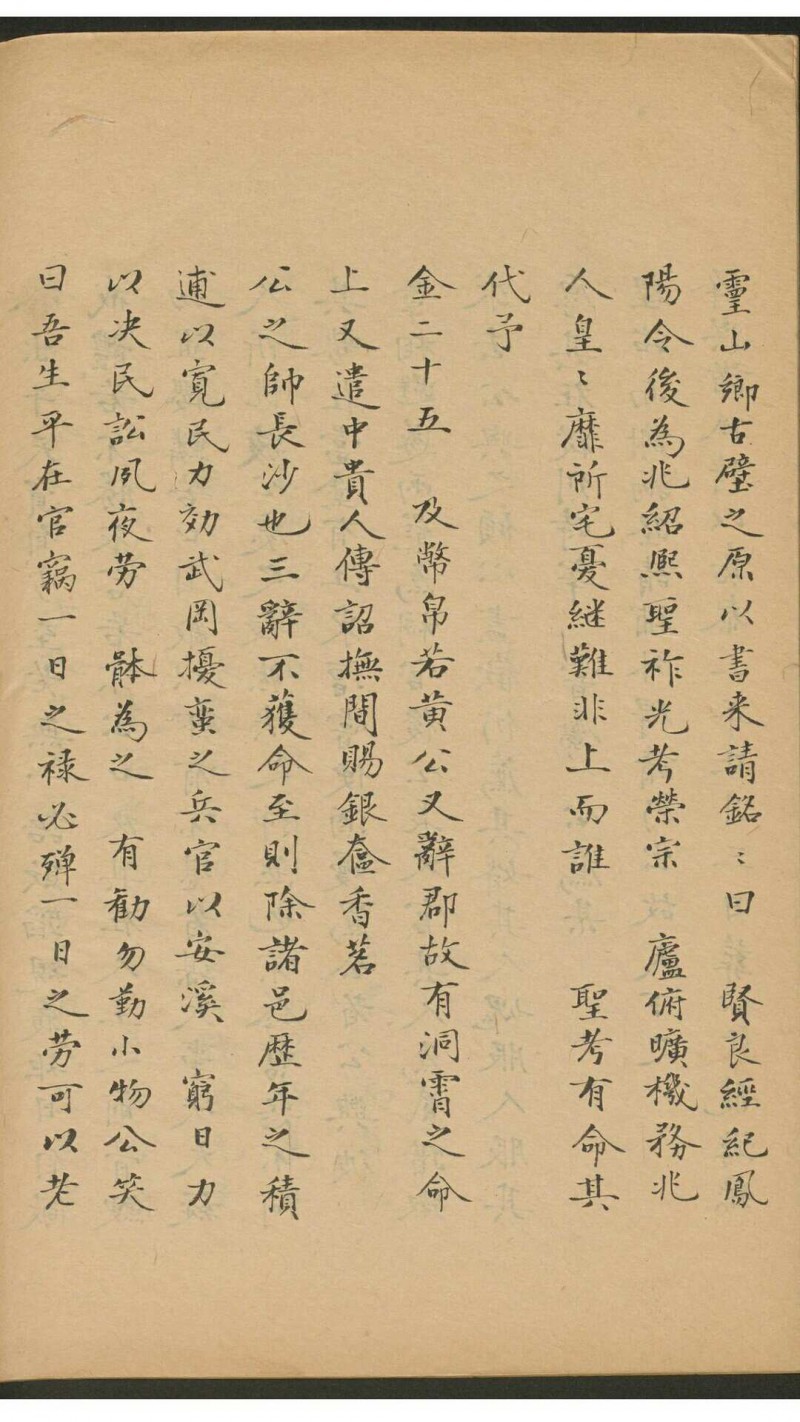 靈山鄉古壁之原以書来請銘〻曰　賢良經紀鳳
陽令後為兆紹熙聖祚光考榮宗　廬俯曠機務兆
人皇〻靡所宅憂継難非上而誰　聖考有命其
代予
金二十五　及幣帛若黄公又辭郡故有洞霄之命
上又遣中貴人傳詔撫問賜銀奩香茗
公之帥長沙也三辭不獲命至則除諸邑歷年之積
逋以寛民力効武岡擾蛮之兵官以安溪　窮日力
以决民訟夙夜劳　骵為之　有勸勿勤小物公笑
曰吾生平在官竊一日之禄必殫一日之劳可以老